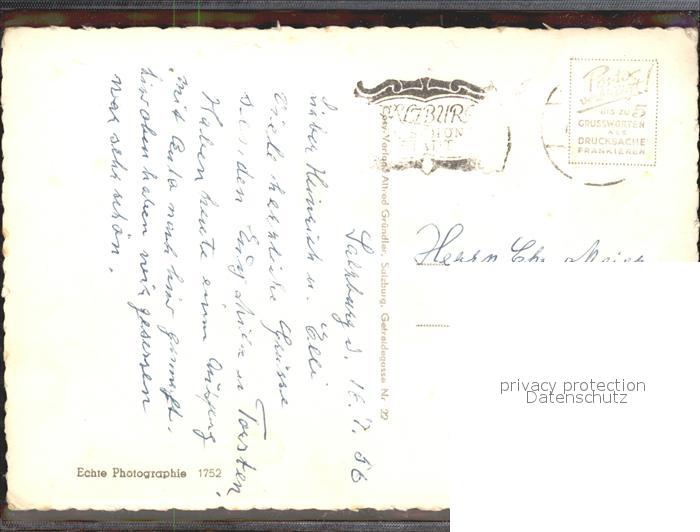 Salzburg d. 16.7.56
Lieber Heinrich u. Elli
Viele herzliche Grüsse
senden Euch
u. Torsten,
Haben heute einen Ausflug
mit Auto nach hier gemacht.
haben wir gesessen
war sehr schön.
SALZBURG
SCHÖN
STADT
Verlag Alfred Gründler, Salzburg, Getreidegasse Nr 22
BIS ZU 5
GRUSSWORTEN
ALS
DRUCKSACHE
FRANKIEREN
Herrn Chr. Meier
privacy protection
Datenschutz
Echte Photographie 1752